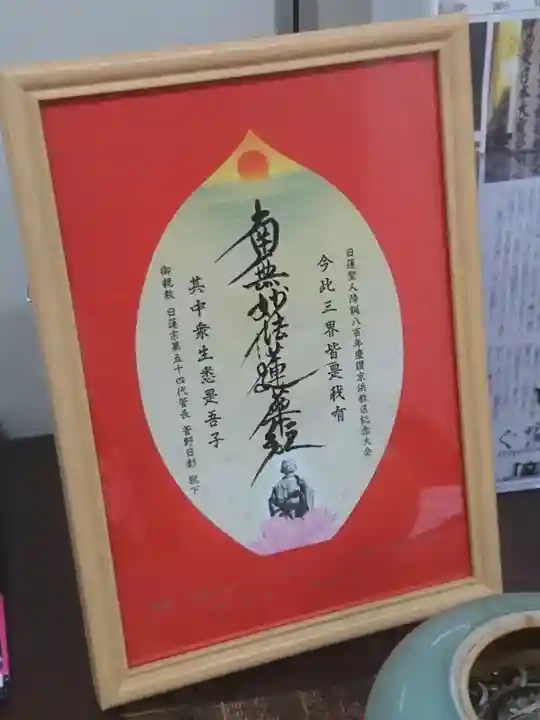 日蓮聖人降誕八百年慶讃京浜教区記念大会
今此三界皆是我有
南無妙法蓮華経
其中衆生悉是吾子
御親教 日蓮宗第五十四代管長 菅野日彰 猊下